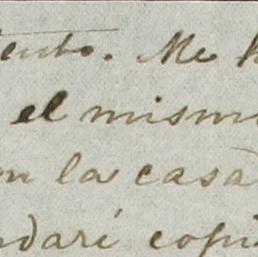 tento. Me h
el mism
en la casa
ndaré copi